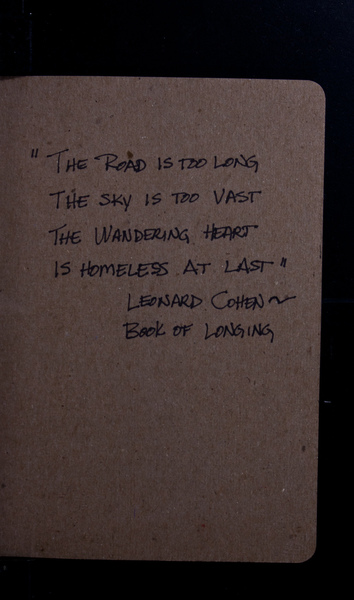 "THE ROAD IS TOO LONG
THE SKY IS TOO VAST
THE WANDERING HEART
IS HOMELESS AT LAST"
LEONARD COHEN ~
BOOK OF LONGING